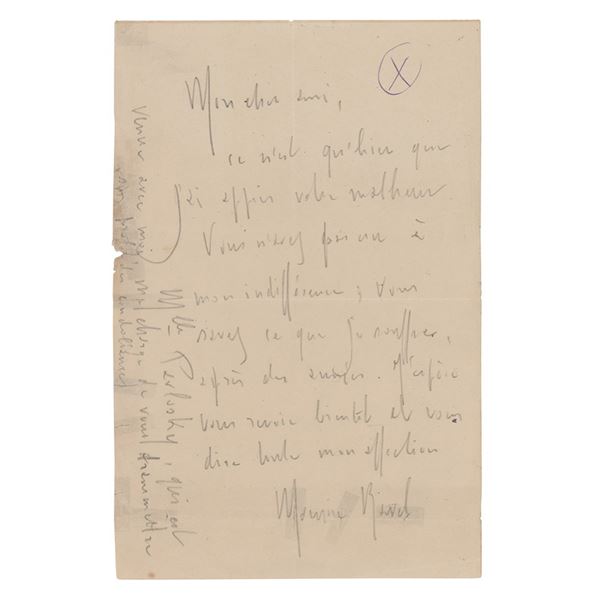 X
Mon cher ami,
ce n'est qu'hier que
j'ai appris votre malheur.
Vous n'avez pas cru à
mon indifférence ; vous
savez ce que je souffre,
après des années. J'espère
vous revoir bientôt et vous
dire toute mon affection
Maurice Ravel
Mlle Perlosky, qui est
venue avec moi, me charge de vous transmettre
condoléances